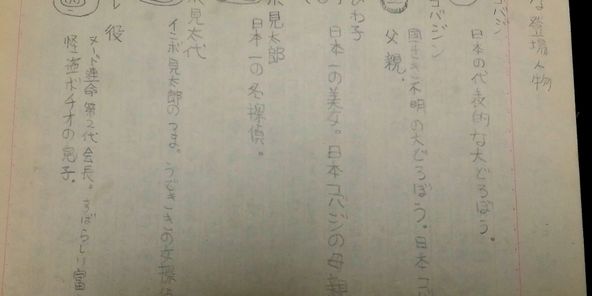 な登場人物
コバジン
日本の代表的な大どろぼう。
コバジン
国せき不明の大どろぼう。日本コ
父親。
わ子
日本一の美女。日本コバジンの母
見太郎
日本一の名探偵。
見太代
見太郎のつま。うでききの女探
役
ヌード連命第2代会長。すばらしい富
怪盗ボチオの息子。